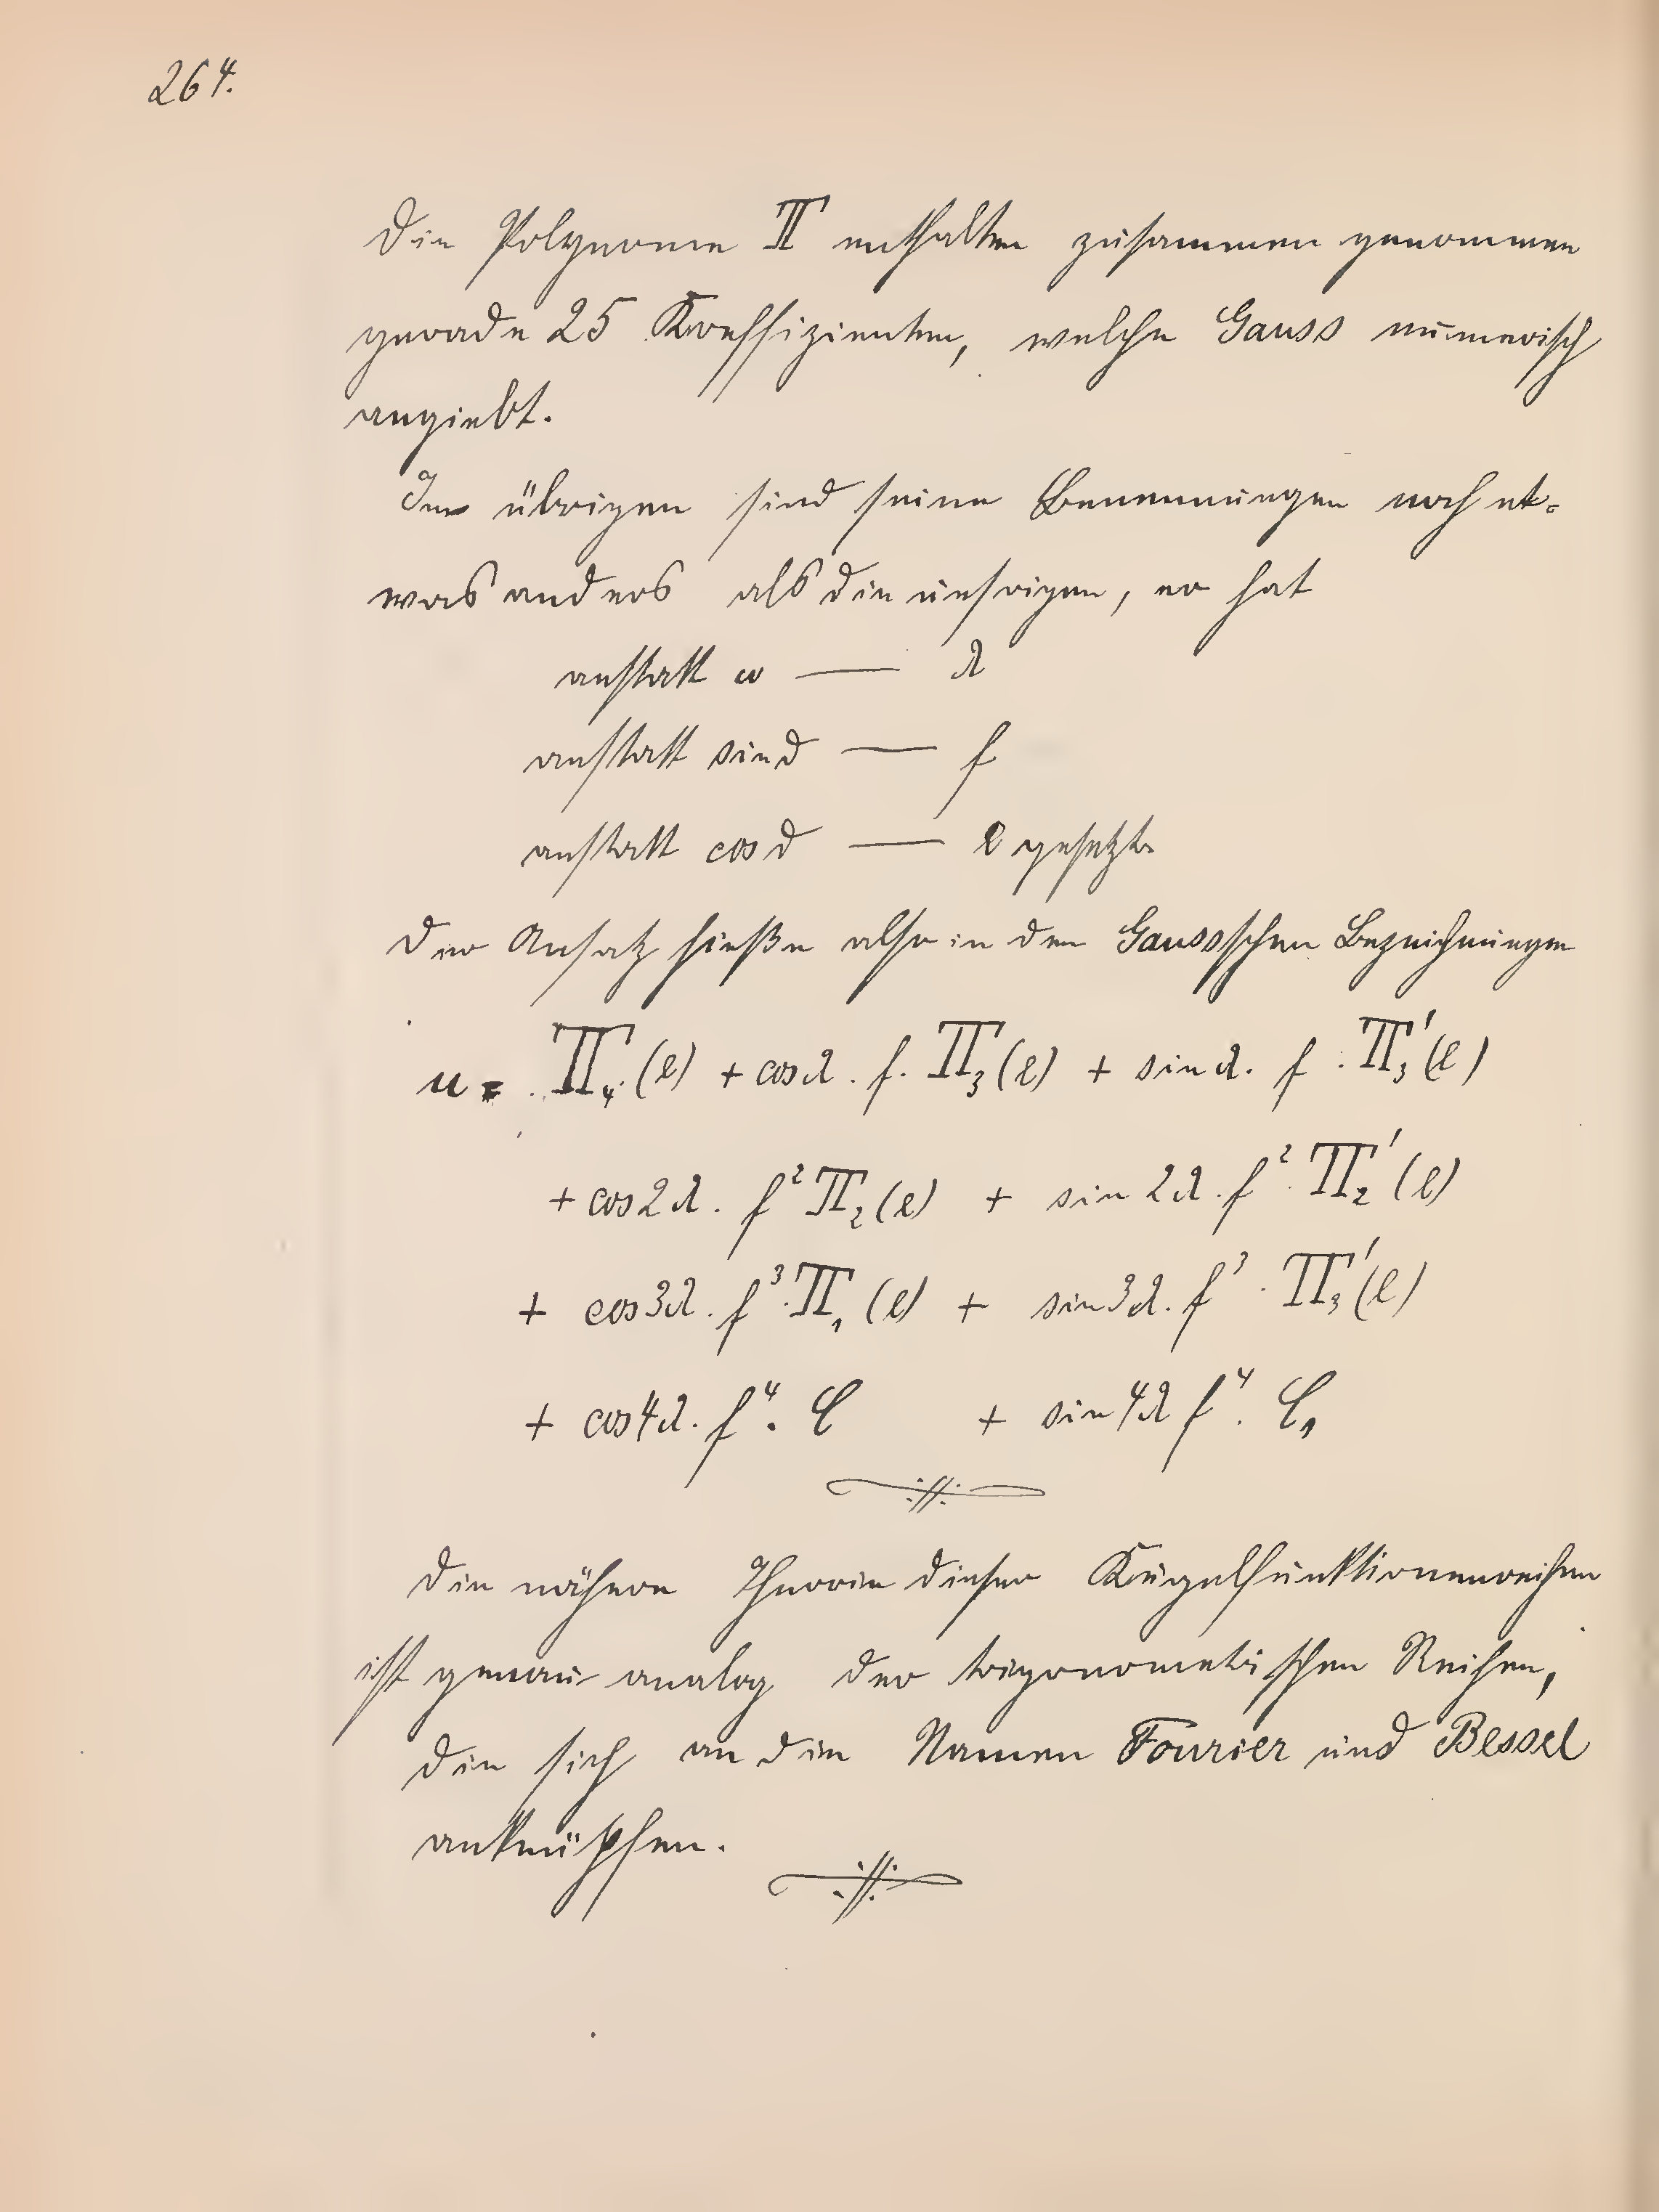 264.
Die Polynome Π enthalten zusammen genommen
gerade 25 Koeffizienten, welche Gauss numerisch
angiebt.
Im übrigen sind seine Benennungen noch et-
was anders als die unsrigen, er hat
anstatt ω — λ
anstatt sin ϑ — f
anstatt cos ϑ — e gesetzt.
Der Ansatz hieße also in den Gaussschen Bezeichnungen
u = Π₄(e) + cos λ . f . Π₃(e) + sin λ . f . Π₃'(e)
+ cos 2λ . f² Π₂(e) + sin 2λ . f² . Π₂'(e)
+ cos 3λ . f³ . Π₁(e) + sin 3λ . f³ . Π₃'(e)
+ cos 4λ . f⁴ . C + sin 4λ f⁴ . C₁
Die nähere Theorie dieser Kugelfunktionenreihen
ist genau analog der trigonometrischen Reihen,
die sich an die Namen Fourier und Bessel
anknüpfen.